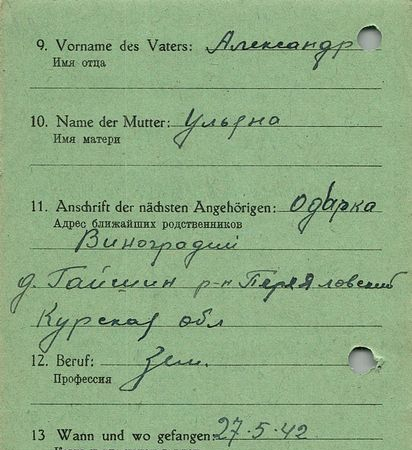 9. Vorname des Vaters: Александр
Имя отца
10. Name der Mutter: Ульяна
Имя матери
11. Anschrift der nächsten Angehörigen: Одарка
Адрес ближайших родственников
Виноградий
д. Гайшин р-н Переяловский
Курская обл
12. Beruf: Зем.
Профессия
13 Wann und wo gefangen: 27.5.42